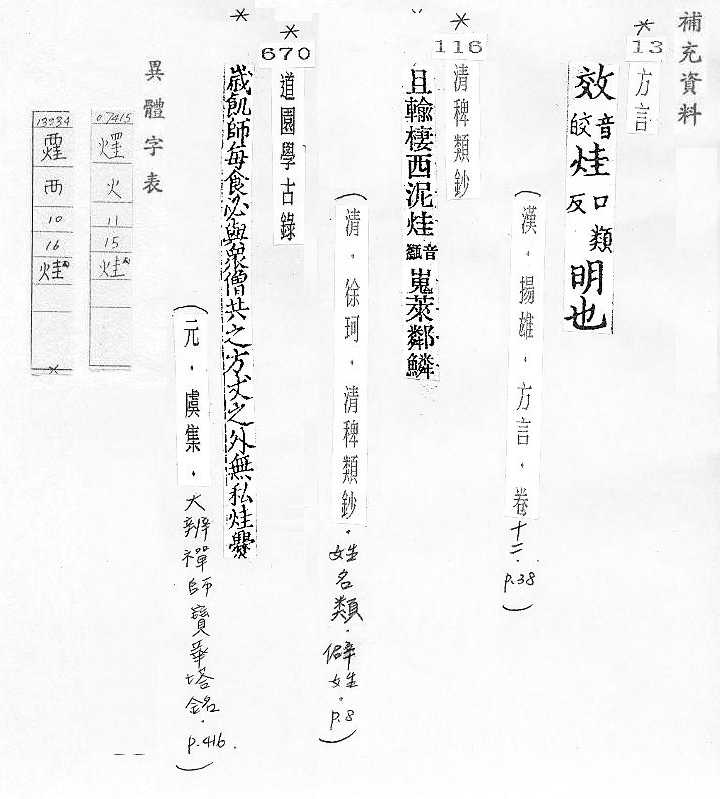 補充資料
*
13
方言
效音皎烓口類反明也
(漢.揚雄.方言.卷十二.p.38)
*
116
清稗類鈔
且輸棲西泥烓音䫔嵬萊鄰鱗
(清.徐珂.清稗類鈔.姓名類.僻姓.p.8)
*
670
道園學古錄
歲飢師每食必與衆僧共之方丈之外無私烓爨
(元.虞集.大辨禪師寶華塔銘.p.416.)
*
異體字表
07415
火
11
15
烓
13934
西
10
16
烓